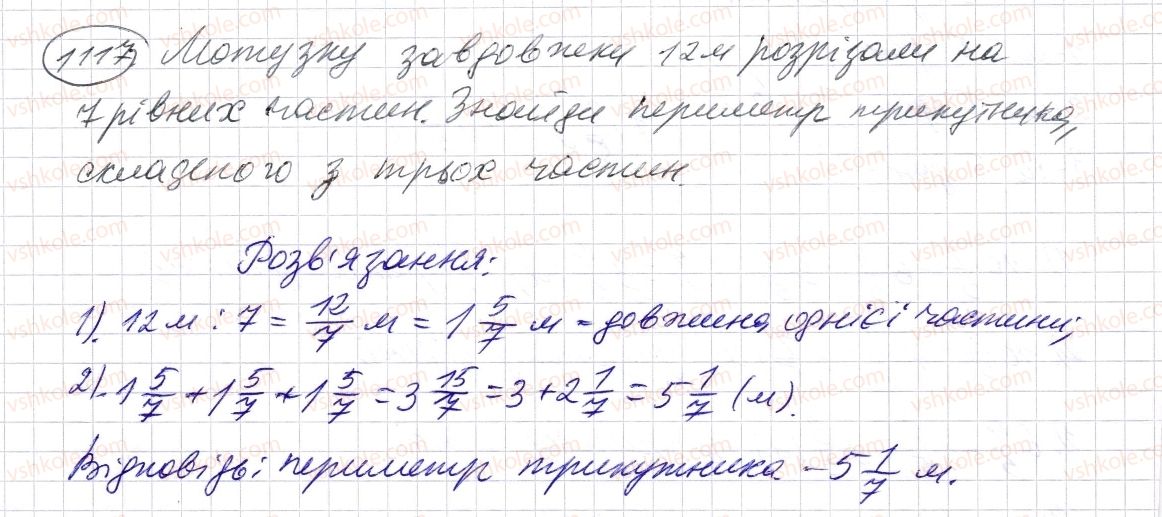 1117) Мотузку завдовжки 12 м розрізали на
7 рівних частин. Знайди периметр трикутника,
складеного з трьох частин.
Розв'язання:
1). 12 м : 7 = 12/7 м = 1 5/7 м - довжина однієї частини;
2). 1 5/7 + 1 5/7 + 1 5/7 = 3 15/7 = 3 + 2 1/7 = 5 1/7 (м).
Відповідь: периметр трикутника - 5 1/7 м.